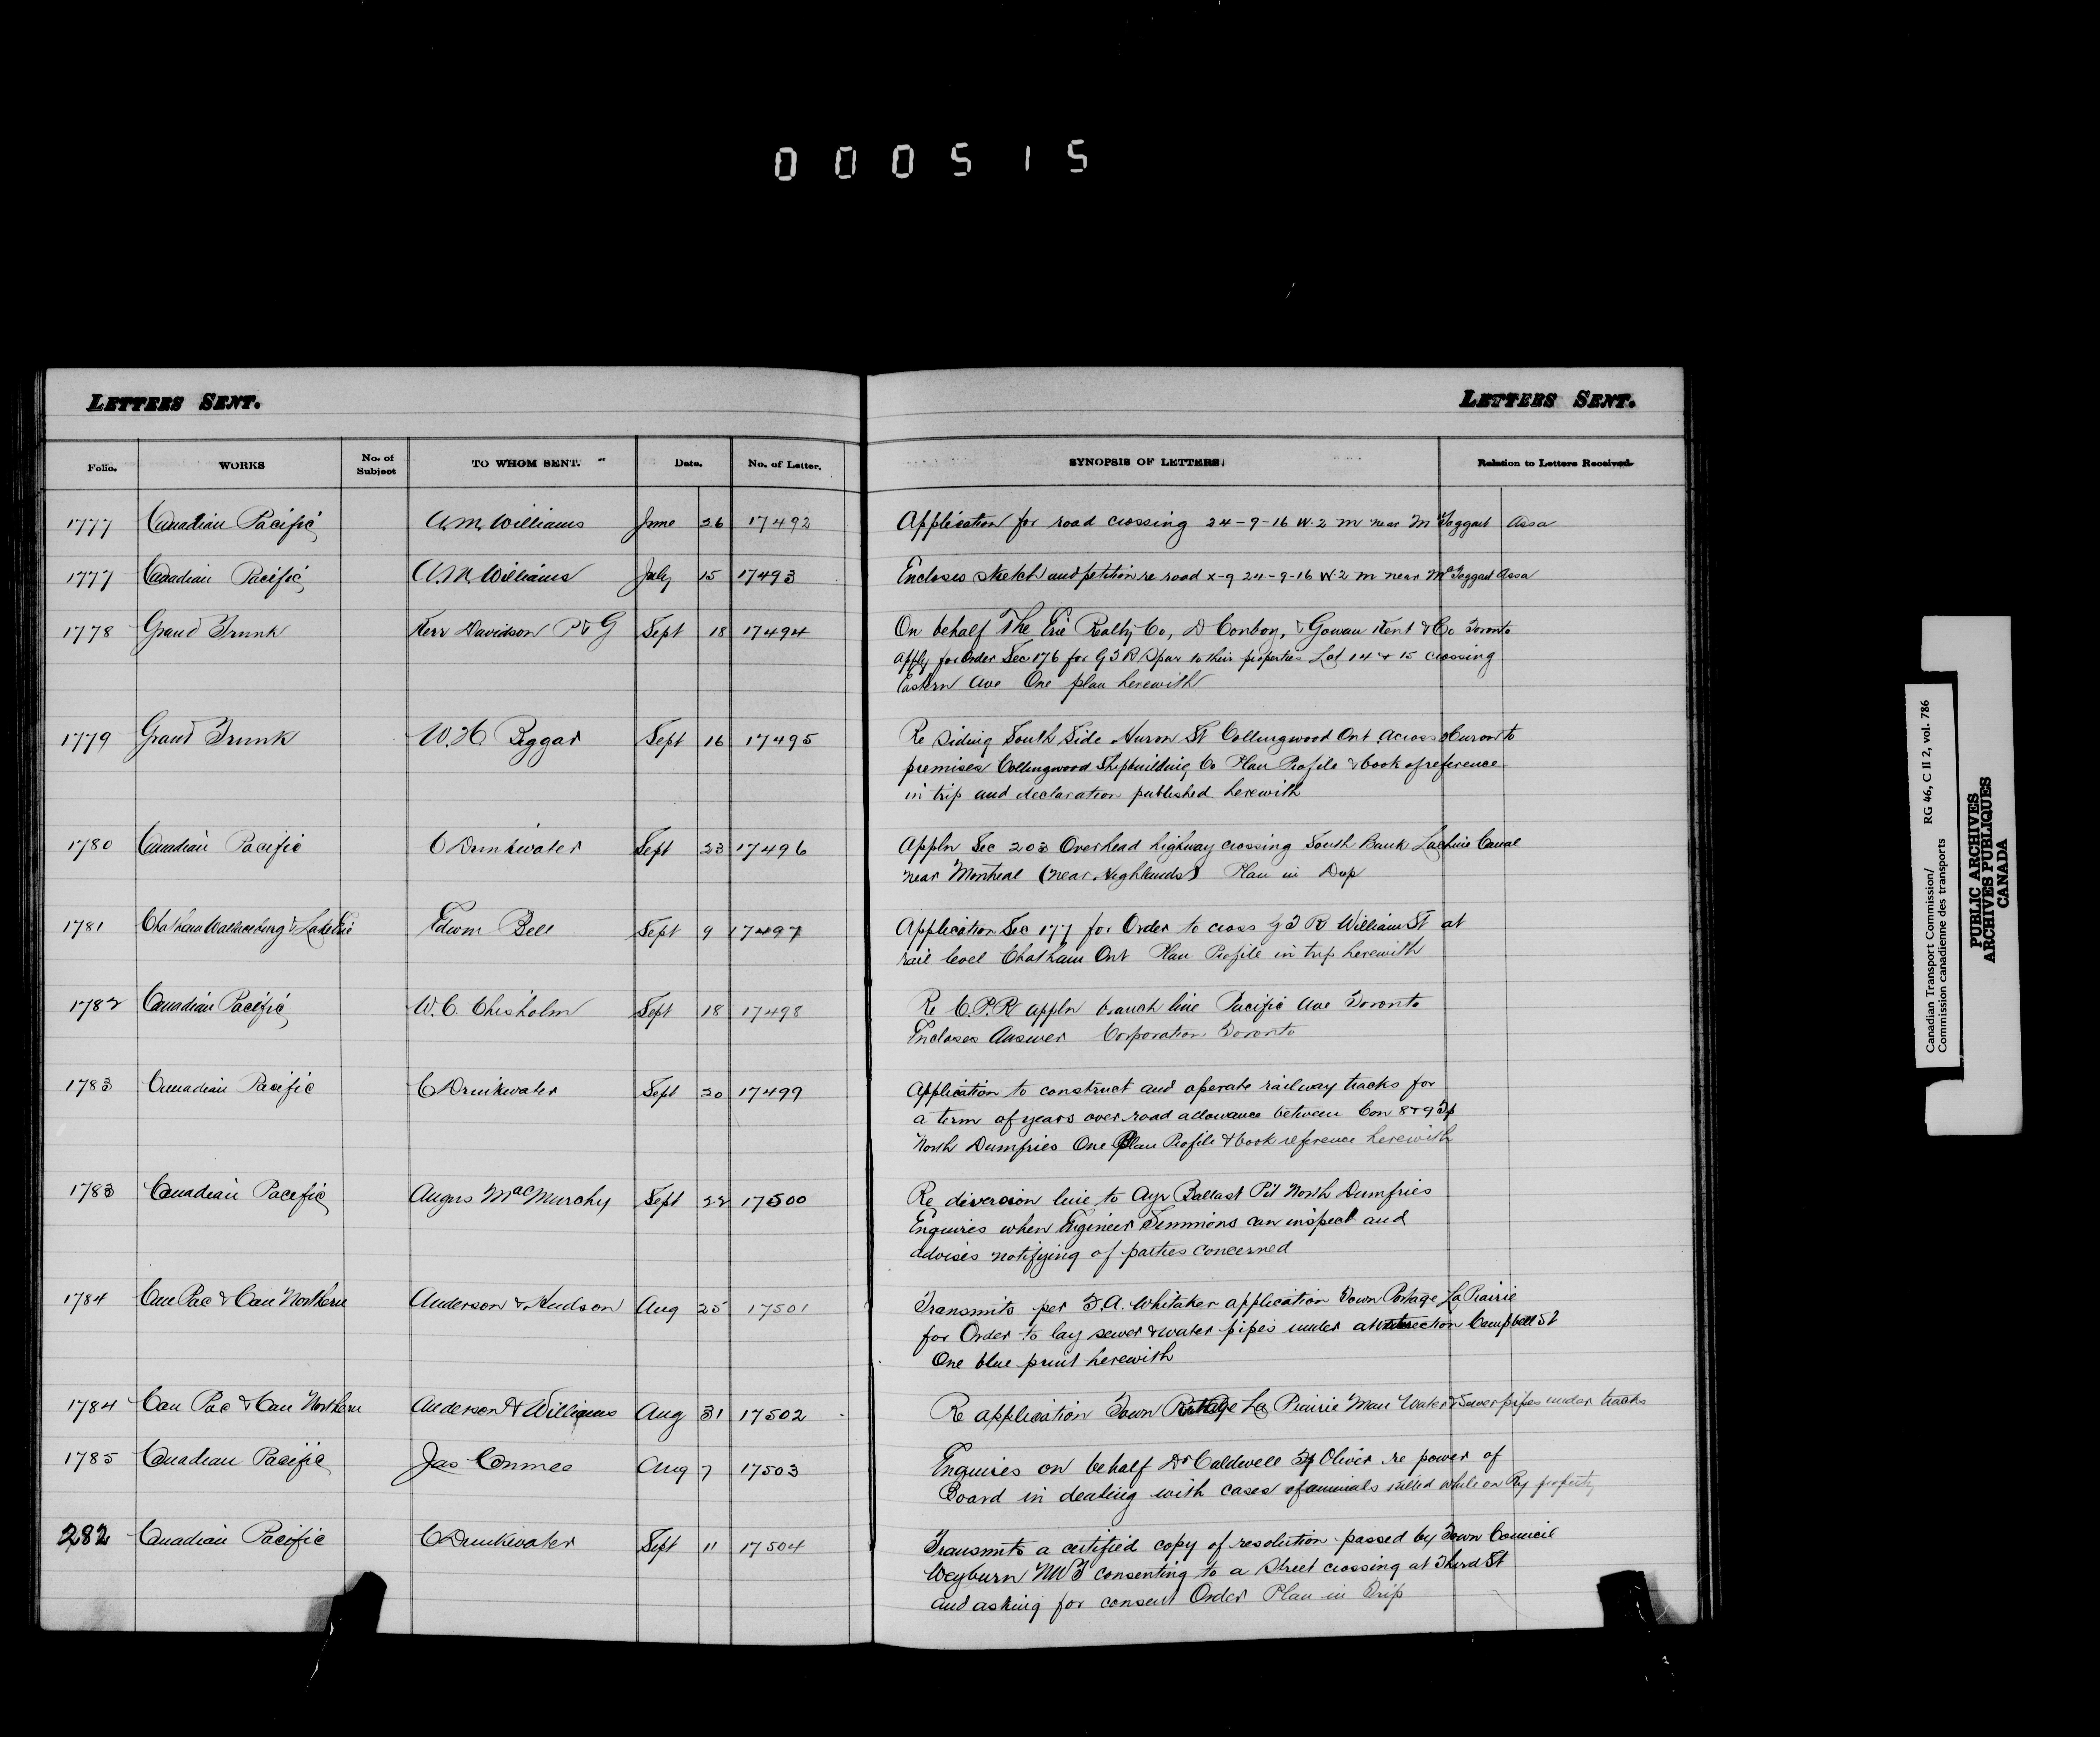 000515
LETTERS SENT.
LETTERS SENT.
Folio. WORKS No. of Subject TO WHOM SENT. Date. No. of Letter. SYNOPSIS OF LETTERS. Relation to Letters Received.
1777 Canadian Pacific A.M. Williams June 26 17492 Application for road crossing 24-9-16 W.2 M near McTaggart Assa
1777 Canadian Pacific A.M. Williams July 15 17493 Encloses sketch and petition re road x-g 24-9-16 W.2 M near McTaggart Assa
1778 Grand Trunk Kerr Davidson P & G Sept 18 17494 On behalf The Erie Realty Co, D Conboy, & Gowan Kent & Co Toronto
apply for Order Sec 176 for G T R Spur to their properties Lot 14 & 15 crossing
Eastern Ave One plan herewith
1779 Grand Trunk W.H. Biggar Sept 16 17495 Re Siding South Side Huron St Collingwood Ont across Huron to
premises Collingwood Shipbuilding Co Plan Profile & book of reference
in trip and declaration published herewith
1780 Canadian Pacific C Drinkwater Sept 23 17496 Appln Sec 203 Overhead highway crossing South Bank Lachine Canal
near Montreal (near Highlands) Plan in Dup
1781 Chatham Wallaceburg & Lake Erie Edwin Bell Sept 9 17497 Application Sec 177 for Order to cross G T R William St at
rail level Chatham Ont Plan Profile in trip herewith
1782 Canadian Pacific W.C. Chisholm Sept 18 17498 Re C.P.R appln branch line Pacific Ave Toronto
Encloses Answer Corporation Toronto
1783 Canadian Pacific C Drinkwater Sept 20 17499 Application to construct and operate railway tracks for
a term of years over road allowance between Con 8 & 9 Tp
North Dumfries One Plan Profile & book reference herewith
1783 Canadian Pacific Angus MacMurchy Sept 22 17500 Re diversion line to Ayr Ballast Pit North Dumfries
Enquires when Engineer Simmons can inspect and
advises notifying of parties concerned
1784 Can Pac & Can Northern Anderson & Hudson Aug 25 17501 Transmits per F.A. Whitaker application Town Portage La Prairie
for Order to lay sewer & water pipes under at intersection Campbell St
One blue print herewith
1784 Can Pac & Can Northern Anderson & Williams Aug 31 17502 Re application Town Portage La Prairie Man Water & Sewer pipes under tracks
1785 Canadian Pacific Jas Conmee Aug 7 17503 Enquires on behalf Dr Caldwell Tp Oliver re power of
Board in dealing with cases of animals killed while on Ry property
282 Canadian Pacific C Drinkwater Sept 11 17504 Transmits a certified copy of resolution passed by Town Council
Weyburn NWT consenting to a Street crossing at Third St
and asking for consent Order Plan in Trip
Canadian Transport Commission/ RG 46, C II 2, vol. 786
Commission canadienne des transports
PUBLIC ARCHIVES
ARCHIVES PUBLIQUES
CANADA